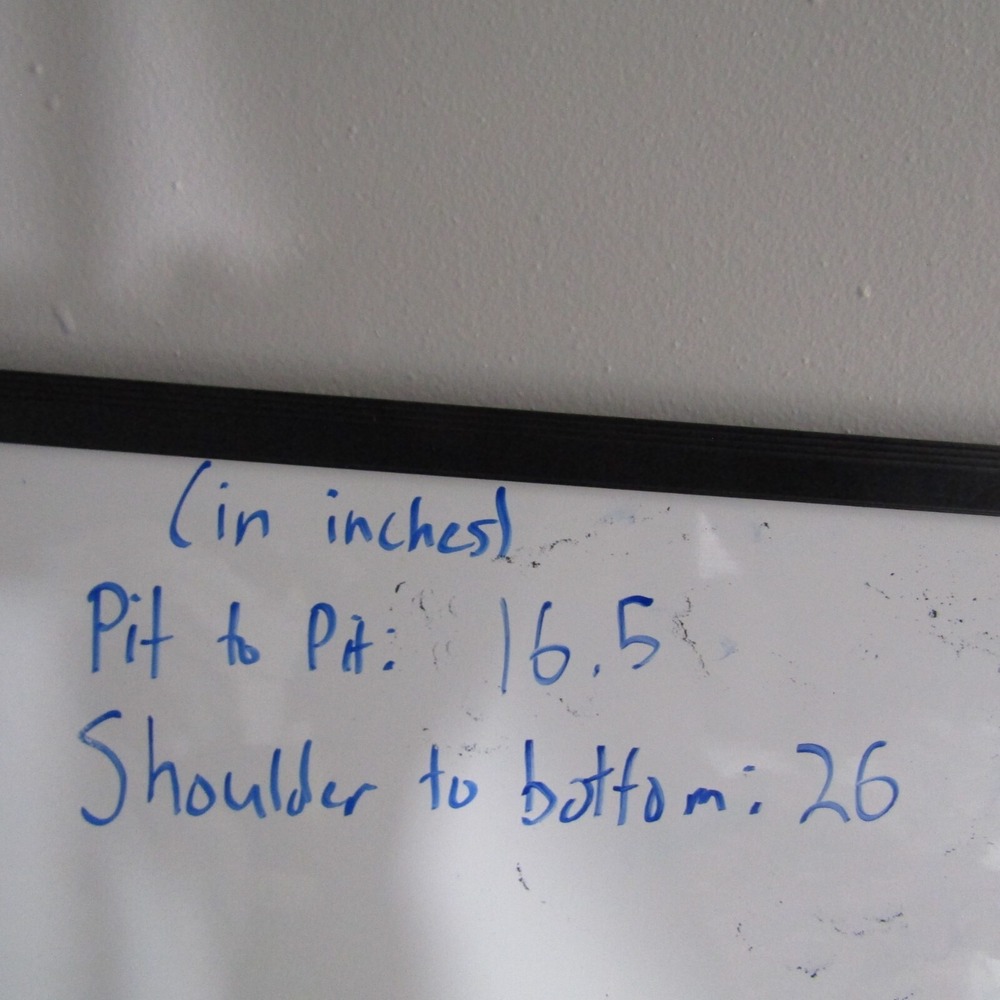 (in inches)
Pit to Pit: 16.5
Shoulder to bottom: 26